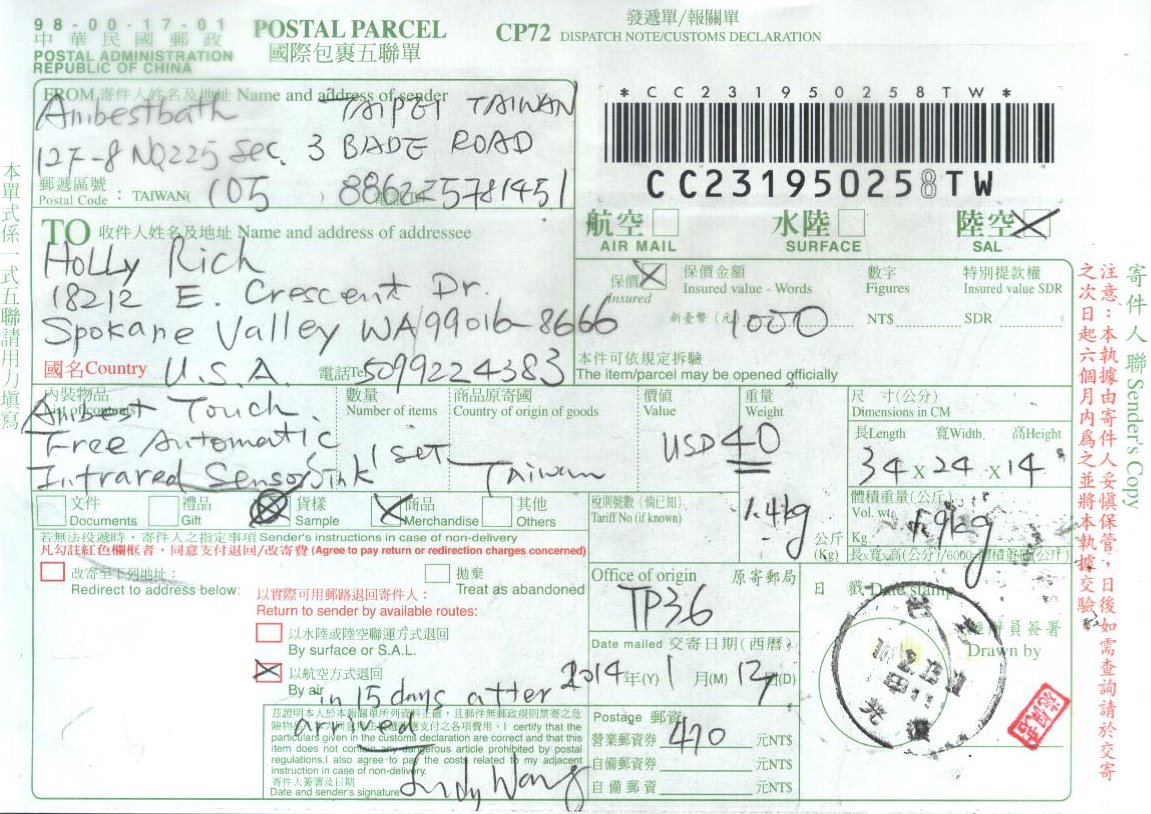 98-00-17-01
中華民國郵政
POSTAL ADMINISTRATION
REPUBLIC OF CHINA
POSTAL PARCEL
國際包裹五聯單
CP72
發遞單/報關單
DISPATCH NOTE/CUSTOMS DECLARATION
FROM 寄件人姓名及地址 Name and address of sender
Ambestbath TAIPEI TAIWAN
127-8 NO.225 Sec. 3 BADE ROAD
郵遞區號
Postal Code : TAIWAN( 105 ) 886225781451
*CC231950258TW*
CC231950258TW
航空
AIR MAIL
水陸
SURFACE
陸空
SAL
TO 收件人姓名及地址 Name and address of addressee
Holly Rich
18212 E. Crescent Dr.
Spokane Valley WA 99016-8666
國名Country U.S.A. 電話Tel 5099224383
保價
Insured
保價金額
Insured value - Words
數字
Figures
特別提款權
Insured value SDR
新臺幣(元) 1000 NT$ SDR
本件可依規定拆驗
The item/parcel may be opened officially
內裝物品
List of contents
數量
Number of items
商品原寄國
Country of origin of goods
價值
Value
重量
Weight
尺 寸(公分)
Dimensions in CM
長Length 寬Width 高Height
Ambest Touch
Free Automatic
Infrared Sensor Sink
1 set
Taiwan
USD 40
34 X 24 X 14
文件
Documents
禮品
Gift
貨樣
Sample
商品
Merchandise
其他
Others
稅則號數(倘已知)
Tariff No (if known)
1.4kg
公斤
(Kg)
體積重量(公斤)
Vol. wt.
Kg
1.9kg
長x寬x高(公分)/6000=體積重量(公斤)
若無法投遞時,寄件人之指定事項 Sender's instructions in case of non-delivery
凡勾註紅色欄框者,同意支付退回/改寄費 (Agree to pay return or redirection charges concerned)
改寄至下列地址:
Redirect to address below:
拋棄
Treat as abandoned
以實際可用郵路退回寄件人:
Return to sender by available routes:
以水陸或陸空聯運方式退回
By surface or S.A.L.
以航空方式退回
By air
in 15 days after
arrived
Office of origin 原寄郵局
TP36
日 戳 Date stamp
經辦員簽署
Drawn by
Date mailed 交寄日期(西曆)
2014 年(Y) 1 月(M) 17 (D)
Postage 郵資
營業郵資券 470 元NT$
自備郵資券 元NT$
自備郵資 元NT$
茲證明本人於本報關單所列資料正確,且郵件無郵政規則禁寄之危
險物品 I certify that the
particulars given in the customs declaration are correct and that this
item does not contain any dangerous article prohibited by postal
regulations. I also agree to pay the costs related to my adjacent
instruction in case of non-delivery.
寄件人簽署及日期
Date and sender's signature
Judy Wang
本單式係一式五聯請用力填寫
寄件人聯 Sender's Copy
注意:本執據由寄件人妥慎保管,日後如需查詢請於交寄
之次日起六個月內為之並將本執據交驗